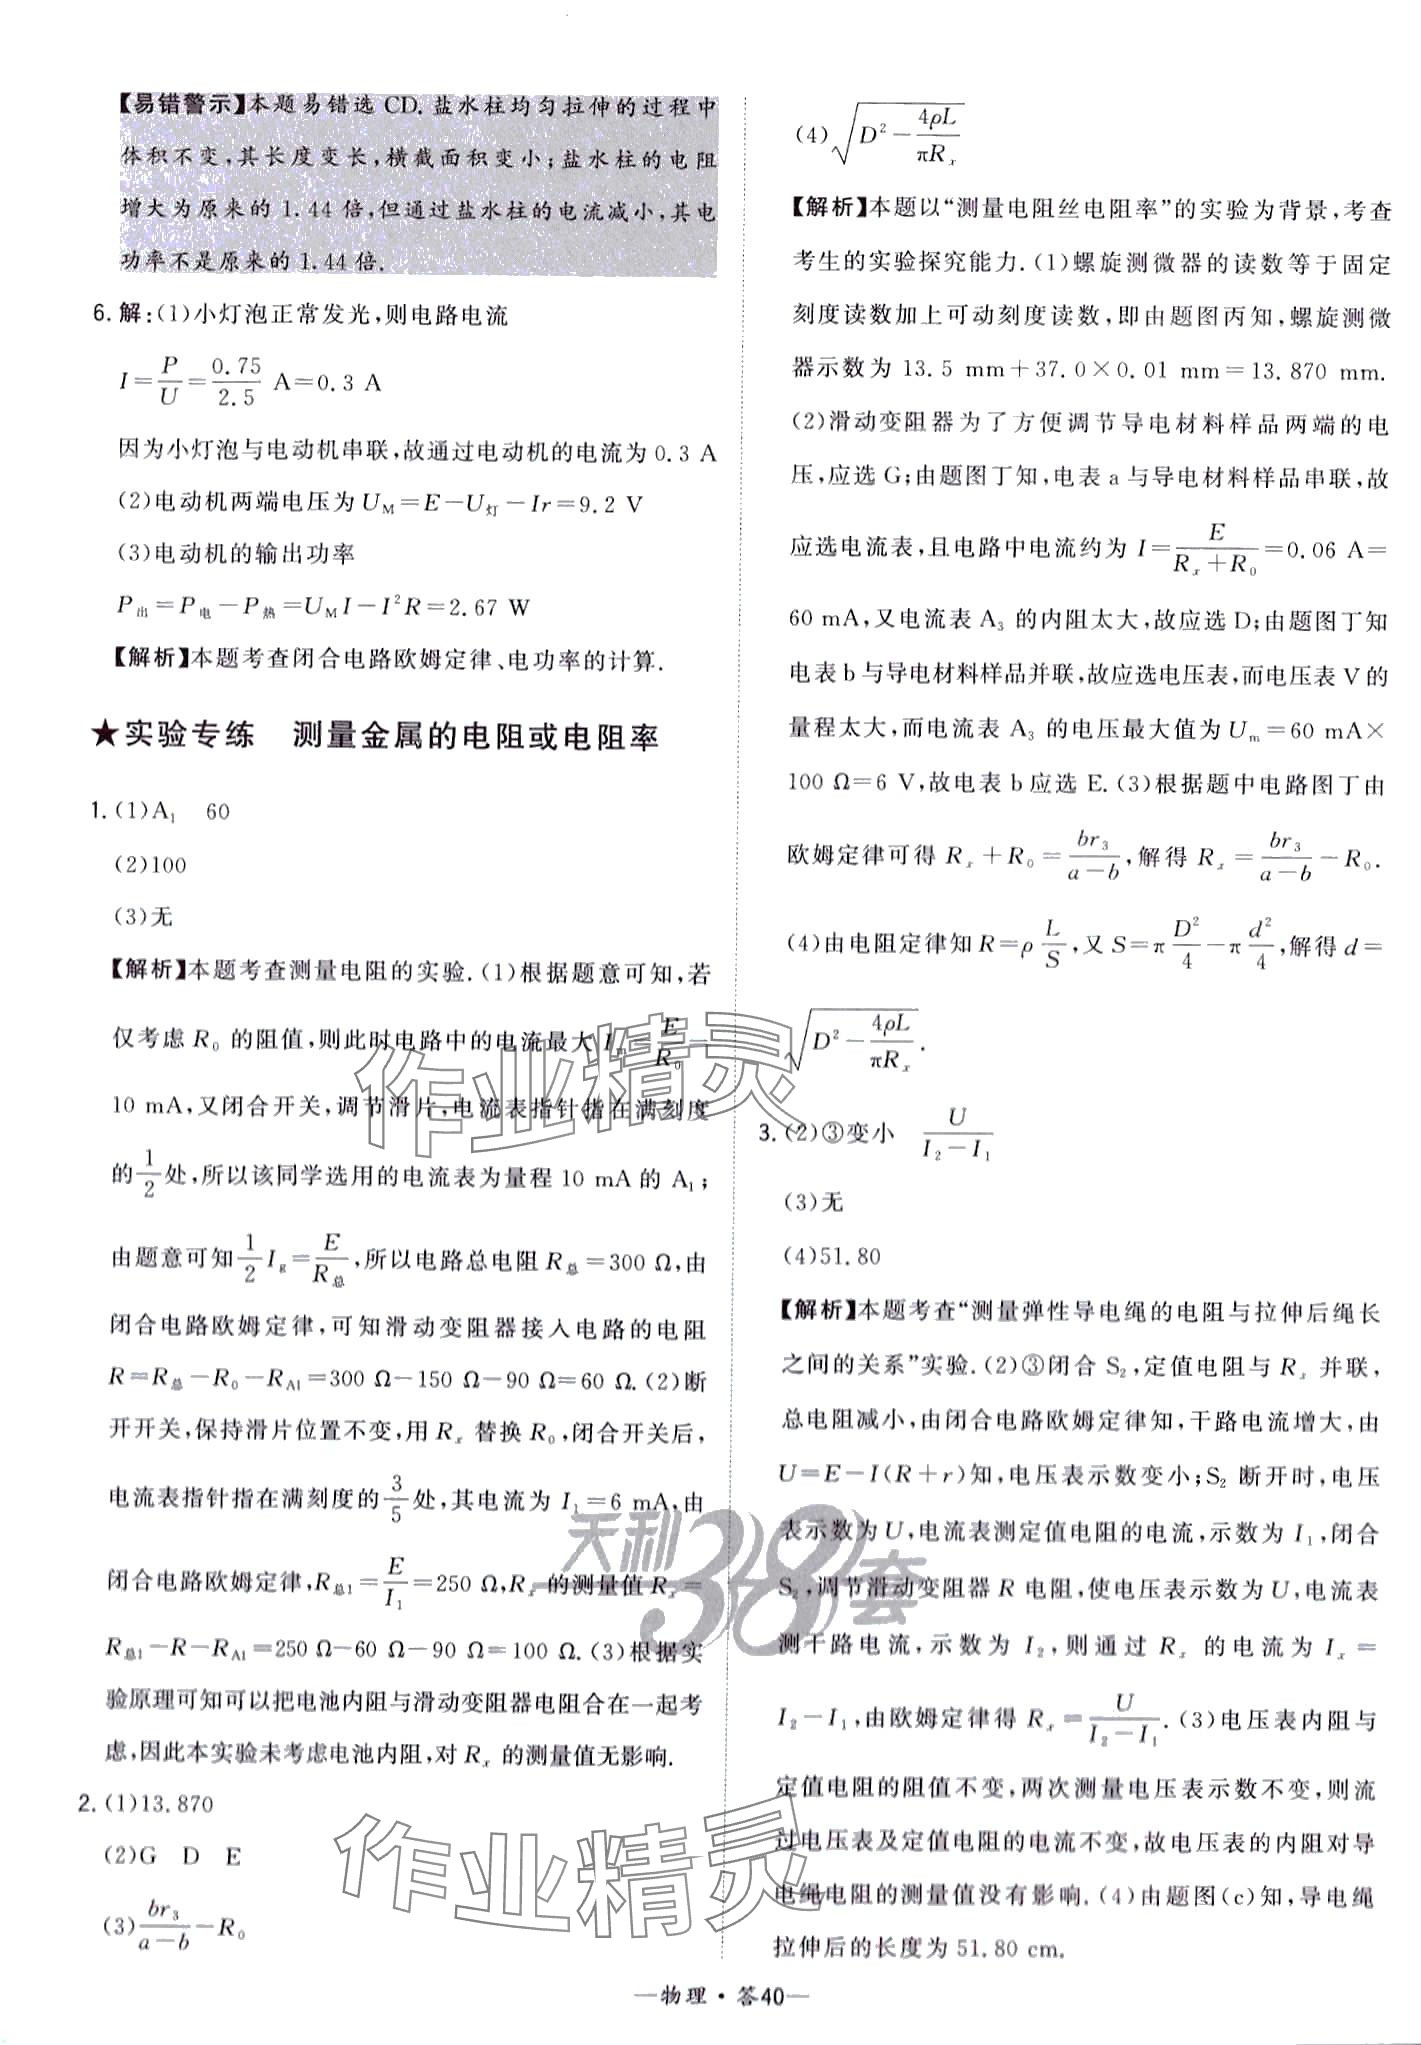 【易错警示】本题易错选 CD. 盐水柱均匀拉伸的过程中
体积不变,其长度变长,横截面积变小;盐水柱的电阻
增大为原来的 1.44 倍,但通过盐水柱的电流减小,其电
功率不是原来的 1.44 倍.
6. 解:(1)小灯泡正常发光,则电路电流
I=P/U=0.75/2.5 A=0.3 A
因为小灯泡与电动机串联,故通过电动机的电流为 0.3 A
(2)电动机两端电压为 U_M=E-U_灯-Ir=9.2 V
(3)电动机的输出功率
P_出=P_电-P_热=U_M I-I²R=2.67 W
【解析】本题考查闭合电路欧姆定律、电功率的计算.
★实验专练 测量金属的电阻或电阻率
1. (1)A₁ 60
(2)100
(3)无
【解析】本题考查测量电阻的实验.(1)根据题意可知,若
仅考虑 R₀ 的阻值,则此时电路中的电流最大 I_m=E/R₀=
10 mA,又闭合开关,调节滑片,电流表指针指在满刻度
的1/2处,所以该同学选用的电流表为量程 10 mA 的 A₁;
由题意可知1/2 I_g=E/R_总,所以电路总电阻 R_总=300 Ω,由
闭合电路欧姆定律,可知滑动变阻器接入电路的电阻
R=R_总-R₀-R_A1=300 Ω-150 Ω-90 Ω=60 Ω.(2)断
开开关,保持滑片位置不变,用 Rₓ 替换 R₀,闭合开关后,
电流表指针指在满刻度的3/5处,其电流为 I₁=6 mA,由
闭合电路欧姆定律,R_总1=E/I₁=250 Ω,Rₓ 的测量值 Rₓ=
R_总1-R-R_A1=250 Ω-60 Ω-90 Ω=100 Ω.(3)根据实
验原理可知可以把电池内阻与滑动变阻器电阻合在一起考
虑,因此本实验未考虑电池内阻,对 Rₓ 的测量值无影响.
2. (1)13.870
(2)G D E
(3)br₃/(a-b)-R₀
(4)√(D²-4ρL/(πRₓ))
【解析】本题以“测量电阻丝电阻率”的实验为背景,考查
考生的实验探究能力.(1)螺旋测微器的读数等于固定
刻度读数加上可动刻度读数,即由题图丙知,螺旋测微
器示数为 13.5 mm+37.0×0.01 mm=13.870 mm.
(2)滑动变阻器为了方便调节导电材料样品两端的电
压,应选 G;由题图丁知,电表 a 与导电材料样品串联,故
应选电流表,且电路中电流约为 I=E/(Rₓ+R₀)=0.06 A=
60 mA,又电流表 A₃ 的内阻太大,故应选 D;由题图丁知
电表 b 与导电材料样品并联,故应选电压表,而电压表 V 的
量程太大,而电流表 A₃ 的电压最大值为 U_m=60 mA×
100 Ω=6 V,故电表 b 应选 E.(3)根据题中电路图丁由
欧姆定律可得 Rₓ+R₀=br₃/(a-b),解得 Rₓ=br₃/(a-b)-R₀.
(4)由电阻定律知 R=ρ L/S,又 S=π D²/4-π d²/4,解得 d=
√(D²-4ρL/(πRₓ)).
3. (2)③变小 U/(I₂-I₁)
(3)无
(4)51.80
【解析】本题考查“测量弹性导电绳的电阻与拉伸后绳长
之间的关系”实验.(2)③闭合 S₂,定值电阻与 Rₓ 并联,
总电阻减小,由闭合电路欧姆定律知,干路电流增大,由
U=E-I(R+r)知,电压表示数变小;S₂ 断开时,电压
表示数为 U,电流表测定值电阻的电流,示数为 I₁,闭合
S₂,调节滑动变阻器 R 电阻,使电压表示数为 U,电流表
测干路电流,示数为 I₂,则通过 Rₓ 的电流为 Iₓ=
I₂-I₁,由欧姆定律得 Rₓ=U/(I₂-I₁).(3)电压表内阻与
定值电阻的阻值不变,两次测量电压表示数不变,则流
过电压表及定值电阻的电流不变,故电压表的内阻对导
电绳电阻的测量值没有影响.(4)由题图(c)知,导电绳
拉伸后的长度为 51.80 cm.
作业精灵
天利38套
作业精灵
—物理·答40—